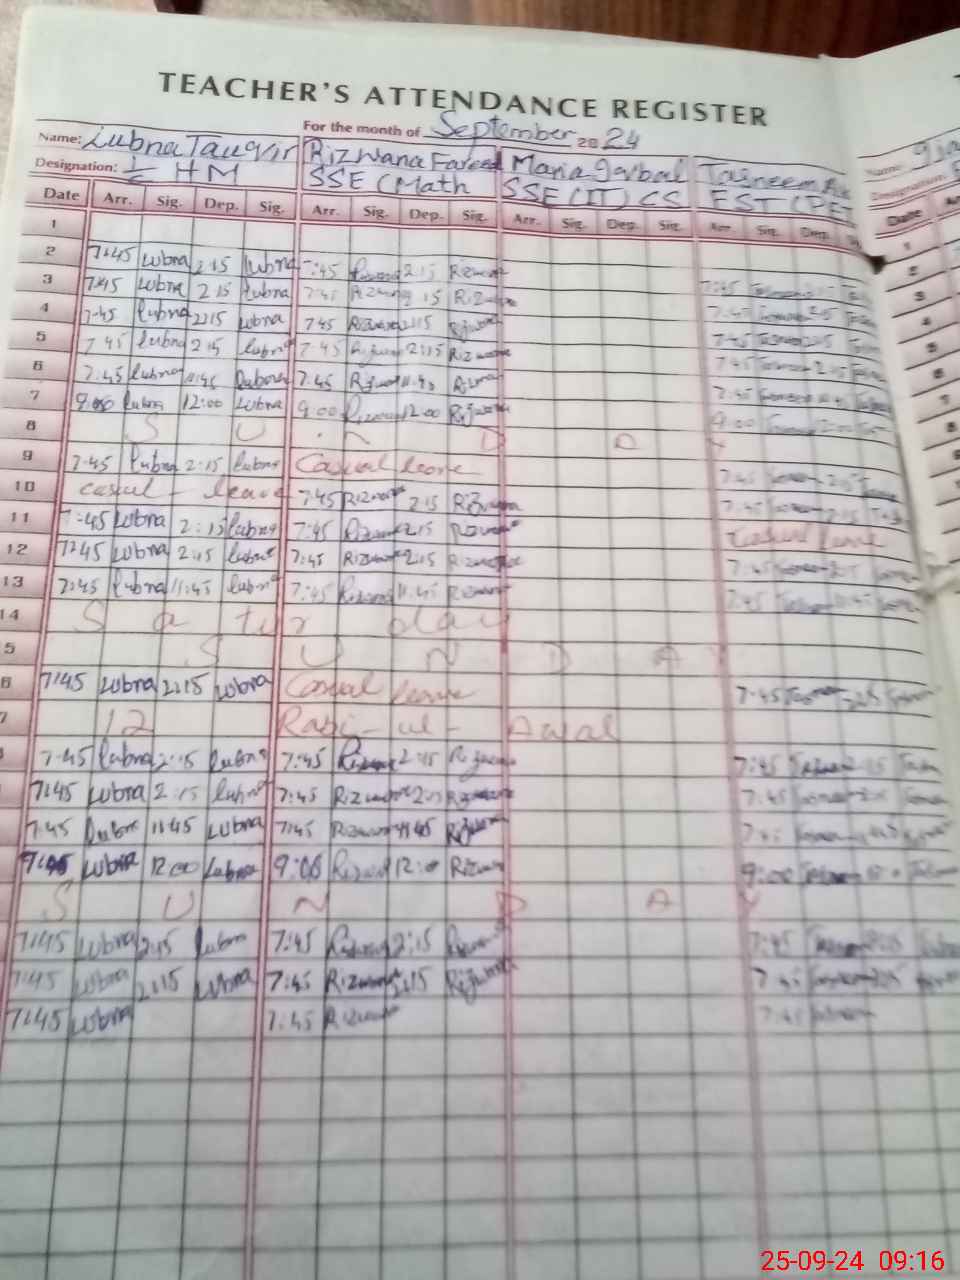 TEACHER'S ATTENDANCE REGISTER
For the month of September 2024
Name: Lubna Tauqir Rizwana Fareed Maria Iqbal Tasneem
Designation: I/C HM SSE (Math SSE (IT) CS EST (PET
Date Arr. Sig. Dep. Sig. Arr. Sig. Dep. Sig. Arr. Sig. Dep. Sig. Arr. Sig. Dep.
1
2 7:45 Lubna 2:15 Lubna 7:45 2:15 Rizwana
3 7:45 Lubna 2:15 Lubna 7:45 Rizwana 2:15 Rizwana 7:45 Tasneem 2:15
4 7:45 Lubna 2:15 Lubna 7:45 Rizwana 2:15 Rizwana 7:45 Tasneem 2:15
5 7:45 Lubna 2:15 Lubna 7:45 Rizwana 2:15 Rizwana 7:45 Tasneem 2:15
6 7:45 Lubna 11:45 Lubna 7:45 Rizwana 11:45 7:45 Tasneem 2:15
7 9:00 Lubna 12:00 Lubna 9:00 Rizwana 12:00 Rizwana 7:45 Tasneem
8 S U N D A Y 9:00 Tasneem
9 7:45 Lubna 2:15 Lubna Casual leave
10 casual - leave 7:45 Rizwana 2:15 Rizwana 7:45 2:15
11 7:45 Lubna 2:15 Lubna 7:45 Rizwana 2:15 Rizwana 7:45 2:15
12 7:45 Lubna 2:15 Lubna 7:45 Rizwana 2:15 Rizwana Casual leave
13 7:45 Lubna 11:45 Lubna 7:45 Rizwana 11:45 Rizwana 7:45 2:15
14 S a tur day 7:45 Tasneem 11:45
5 S U N D A Y
6 7:45 Lubna 2:15 Lubna Casual leave 7:45 Tasneem 2:15
7 12 Rabi-ul-Awal
7:45 Lubna 2:15 Lubna 7:45 Rizwana 2:15 Rizwana 7:45 Tasneem 2:15
7:45 Lubna 2:15 Lubna 7:45 Rizwana 2:15 Rizwana 7:45 Tasneem
7:45 Lubna 11:45 Lubna 7:45 Rizwana 11:45 Rizwana 7:45 Tasneem
Lubna 12:00 Lubna 9:00 Rizwana 12:0 Rizwana 9:00 Tasneem
S U N D A Y
7:45 Lubna 2:15 Lubna 7:45 Rizwana 2:15 Rizwana 7:45 Tasneem 2:15
7:45 Lubna 2:15 Lubna 7:45 Rizwana 2:15 Rizwana 7:45 Tasneem 2:15
7:45 Lubna 7:45 Rizwana 7:45 Tasneem
Name:
Designation:
Date
1
2
3
4
5
6
7
8
9
25-09-24 09:16